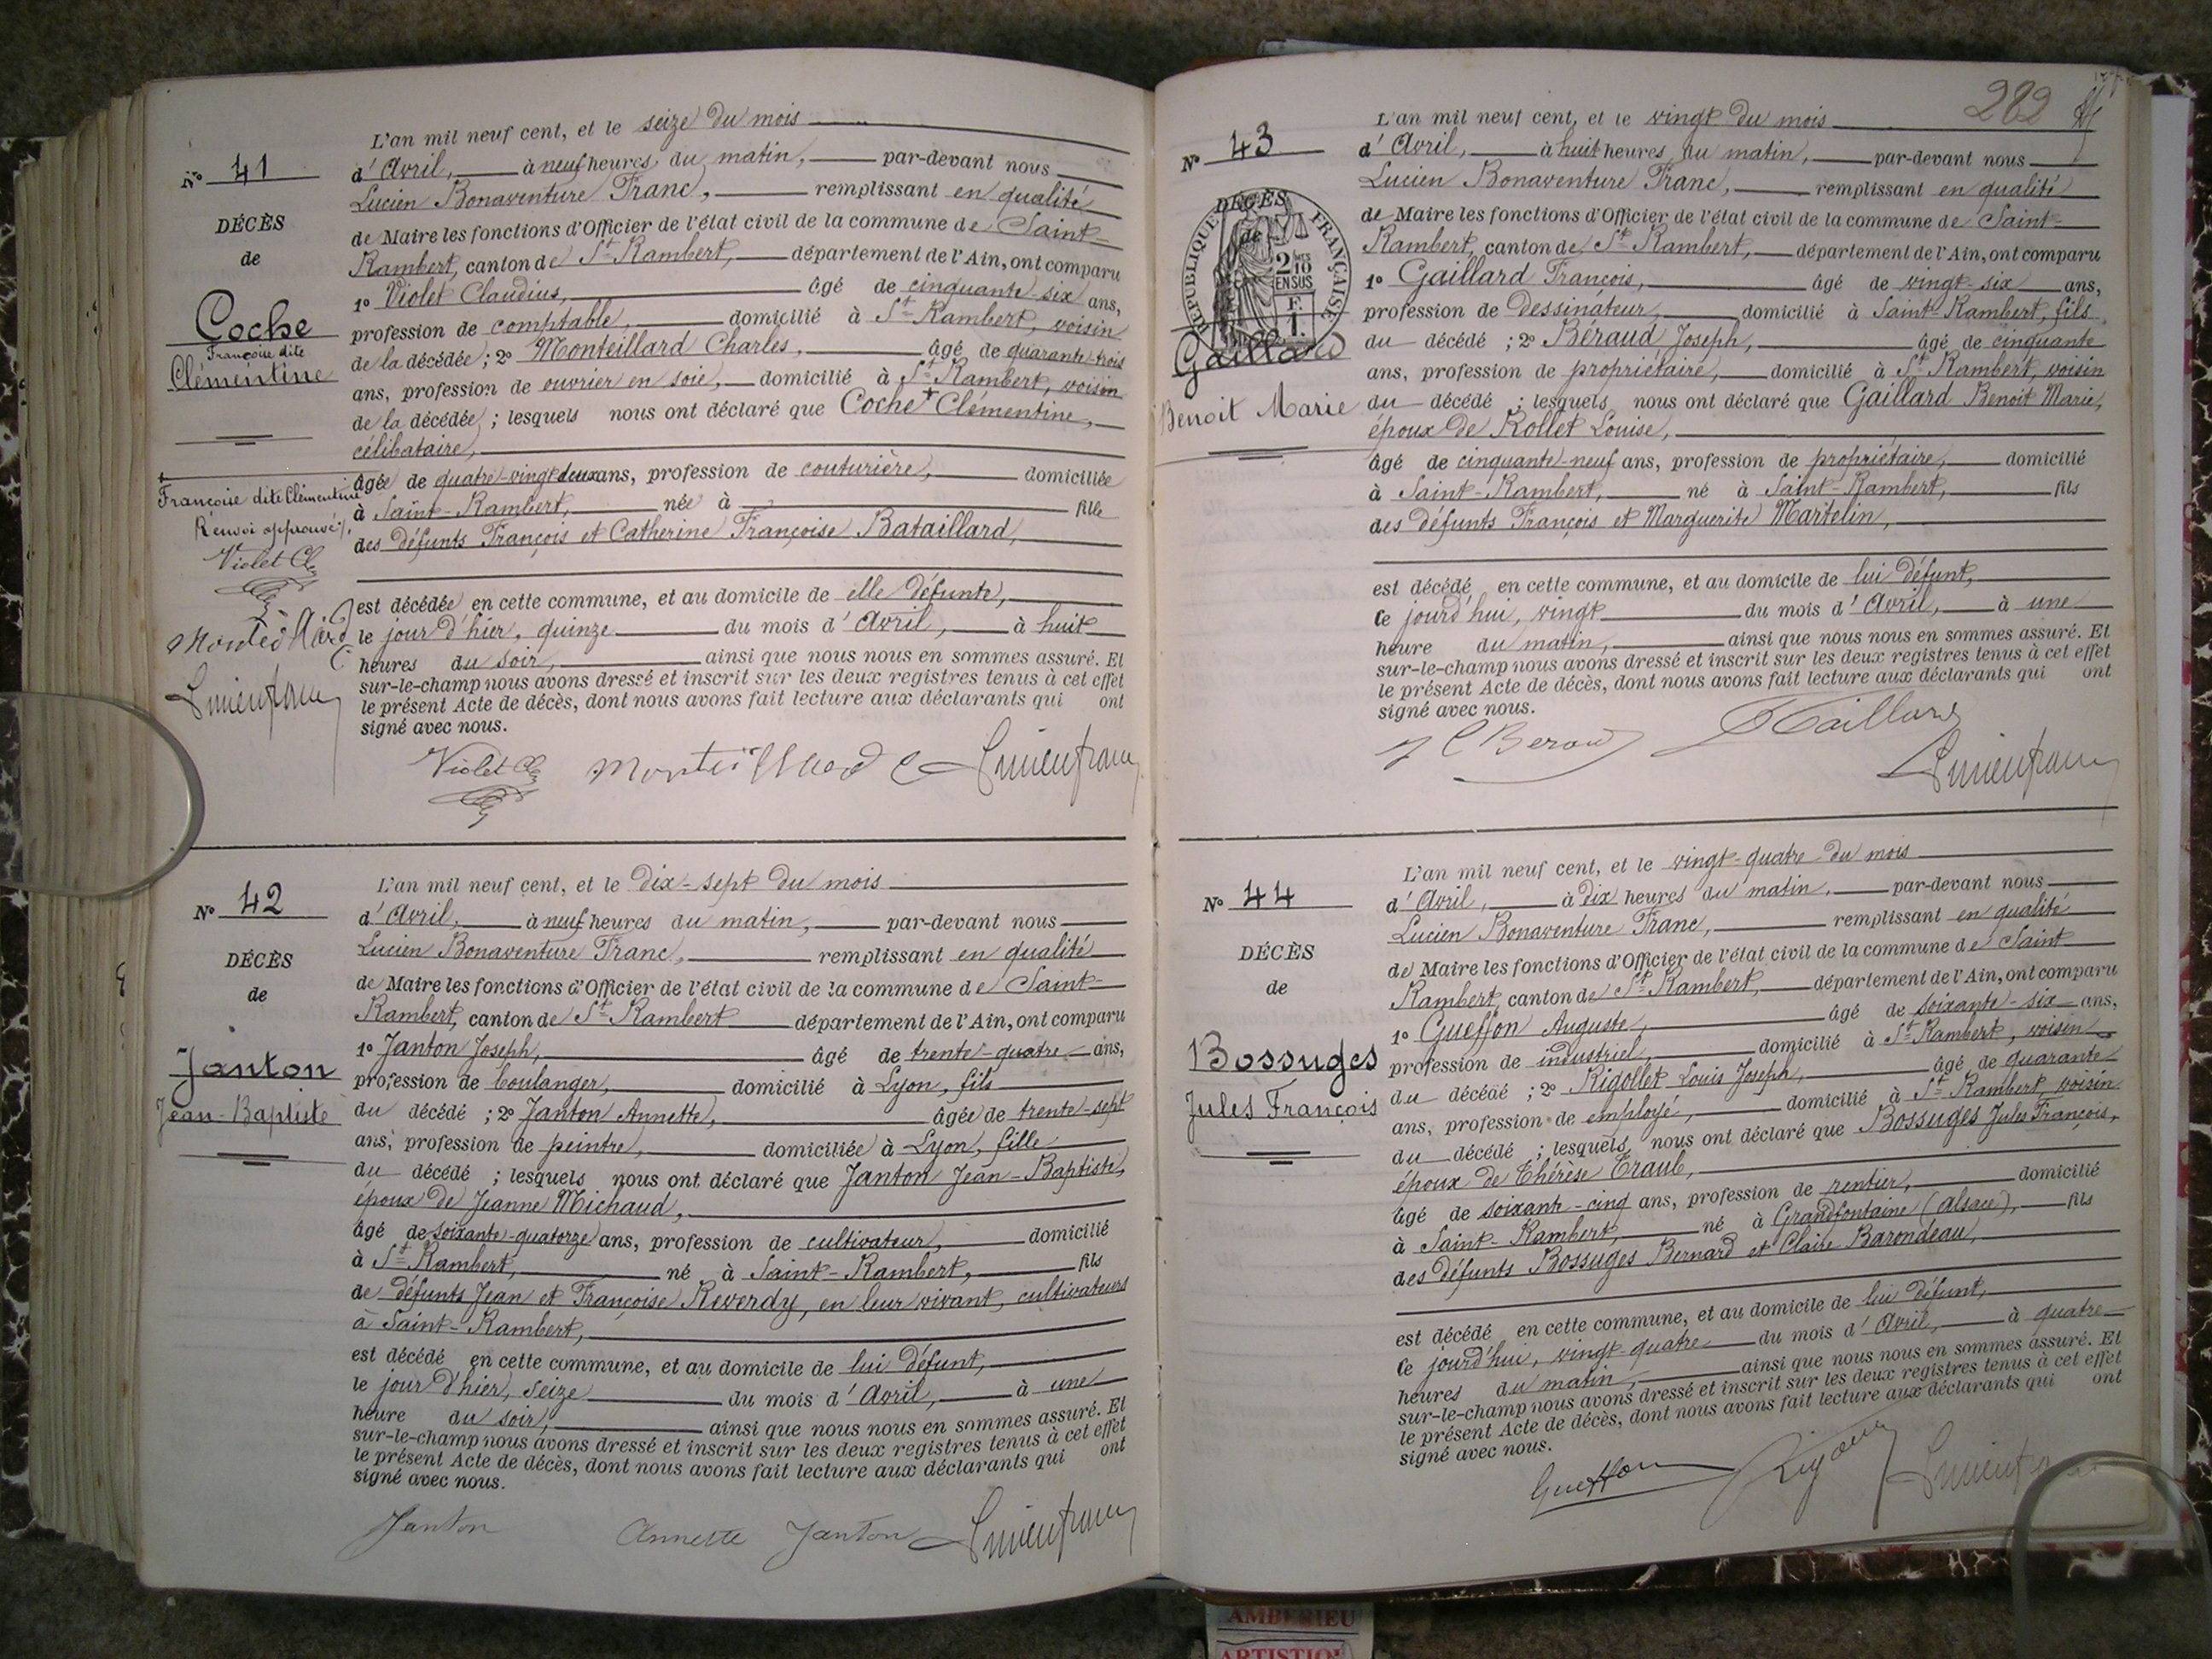 L'an mil neuf cent, et le seize du mois
N° 41
d'Avril, à neuf heures du matin, par-devant nous
Lucien Bonaventure Franc, remplissant en qualité
DÉCÈS
de Maire les fonctions d'Officier de l'état civil de la commune de Saint-
de
Rambert, canton de St Rambert, département de l'Ain, ont comparu
Coche
Françoise dite
Clémentine
1° Violet Claudius, âgé de cinquante-six ans,
profession de comptable, domicilié à St Rambert, voisin
de la décédée ; 2° Monteillard Charles, âgé de quarante-trois
ans, profession de ouvrier en soie, domicilié à St Rambert, voisin
de la décédée ; lesquels nous ont déclaré que Coche + Clémentine,
célibataire,
âgée de quatre-vingt deux ans, profession de couturière, domiciliée
à Saint-Rambert, née à fille
des défunts François et Catherine Françoise Bataillard,
+
Françoise dite Clémentine
Renvoi approuvé
Violet Cl
Monteillard C
Lucien franc
est décédée en cette commune, et au domicile de elle défunte,
le jour d'hier, quinze du mois d'Avril, à huit
heures du soir, ainsi que nous nous en sommes assuré. Et
sur-le-champ nous avons dressé et inscrit sur les deux registres tenus à cet effet
le présent Acte de décès, dont nous avons fait lecture aux déclarants qui ont
signé avec nous.
Violet Cl Monteillard C Lucien franc
L'an mil neuf cent, et le dix-sept du mois
N° 42
d'Avril, à neuf heures du matin, par-devant nous
Lucien Bonaventure Franc, remplissant en qualité
DÉCÈS
de Maire les fonctions d'Officier de l'état civil de la commune de Saint-
de
Rambert, canton de St Rambert département de l'Ain, ont comparu
Janton
Jean-Baptiste
1° Janton Joseph, âgé de trente-quatre ans,
profession de boulanger, domicilié à Lyon, fils
du décédé ; 2° Janton Annette, âgée de trente-sept
ans, profession de peintre, domiciliée à Lyon, fille
du décédé ; lesquels nous ont déclaré que Janton Jean-Baptiste,
époux de Jeanne Michaud,
âgé de soixante-quatorze ans, profession de cultivateur, domicilié
à St Rambert, né à Saint-Rambert, fils
de défunts Jean et Françoise Reverdy, en leur vivant, cultivateurs
à Saint-Rambert,
est décédé en cette commune, et au domicile de lui défunt,
le jour d'hier, seize du mois d'Avril, à une
heure du soir, ainsi que nous nous en sommes assuré. Et
sur-le-champ nous avons dressé et inscrit sur les deux registres tenus à cet effet
le présent Acte de décès, dont nous avons fait lecture aux déclarants qui ont
signé avec nous.
Janton Annette Janton Lucien franc
282
L'an mil neuf cent, et le vingt du mois
N° 43
d'Avril, à huit heures du matin, par-devant nous
Lucien Bonaventure Franc, remplissant en qualité
DÉCÈS
de
RÉPUBLIQUE FRANÇAISE
2 10
EN SUS
de Maire les fonctions d'Officier de l'état civil de la commune de Saint-
Rambert, canton de St Rambert, département de l'Ain, ont comparu
Gaillard
Benoît Marie
1° Gaillard François, âgé de vingt-six ans,
profession de Dessinateur, domicilié à Saint-Rambert, fils
du décédé ; 2° Béraud Joseph, âgé de cinquante
ans, profession de propriétaire, domicilié à St Rambert, voisin
du décédé ; lesquels nous ont déclaré que Gaillard Benoît Marie,
époux de Rollet Louise,
âgé de cinquante-neuf ans, profession de propriétaire, domicilié
à Saint-Rambert, né à Saint-Rambert, fils
des défunts François et Marguerite Martelin,
est décédé en cette commune, et au domicile de lui défunt,
ce jourd'hui, vingt du mois d'Avril, à une
heure du matin, ainsi que nous nous en sommes assuré. Et
sur-le-champ nous avons dressé et inscrit sur les deux registres tenus à cet effet
le présent Acte de décès, dont nous avons fait lecture aux déclarants qui ont
signé avec nous.
Beraud Gaillard Lucien franc
L'an mil neuf cent, et le vingt-quatre du mois
N° 44
d'Avril, à dix heures du matin, par-devant nous
Lucien Bonaventure Franc, remplissant en qualité
DÉCÈS
de Maire les fonctions d'Officier de l'état civil de la commune de Saint
de
Rambert, canton de St Rambert, département de l'Ain, ont comparu
Bossuges
Jules François
1° Gueffon Auguste, âgé de soixante-six ans,
profession de industriel, domicilié à St Rambert, voisin
du décédé ; 2° Rigollet Louis Joseph, âgé de quarante
ans, profession de employé, domicilié à St Rambert, voisin
du décédé ; lesquels nous ont déclaré que Bossuges Jules François,
époux de Thérèse Traub,
âgé de soixante-cinq ans, profession de rentier, domicilié
à Saint-Rambert, né à Grandfontaine (Alsace), fils
des défunts Bossuges Bernard et Claire Barondeau,
est décédé en cette commune, et au domicile de lui défunt,
ce jourd'hui, vingt-quatre du mois d'Avril, à quatre
heures du matin, ainsi que nous nous en sommes assuré. Et
sur-le-champ nous avons dressé et inscrit sur les deux registres tenus à cet effet
le présent Acte de décès, dont nous avons fait lecture aux déclarants qui ont
signé avec nous.
Gueffon Lucien franc
AMBERIEU